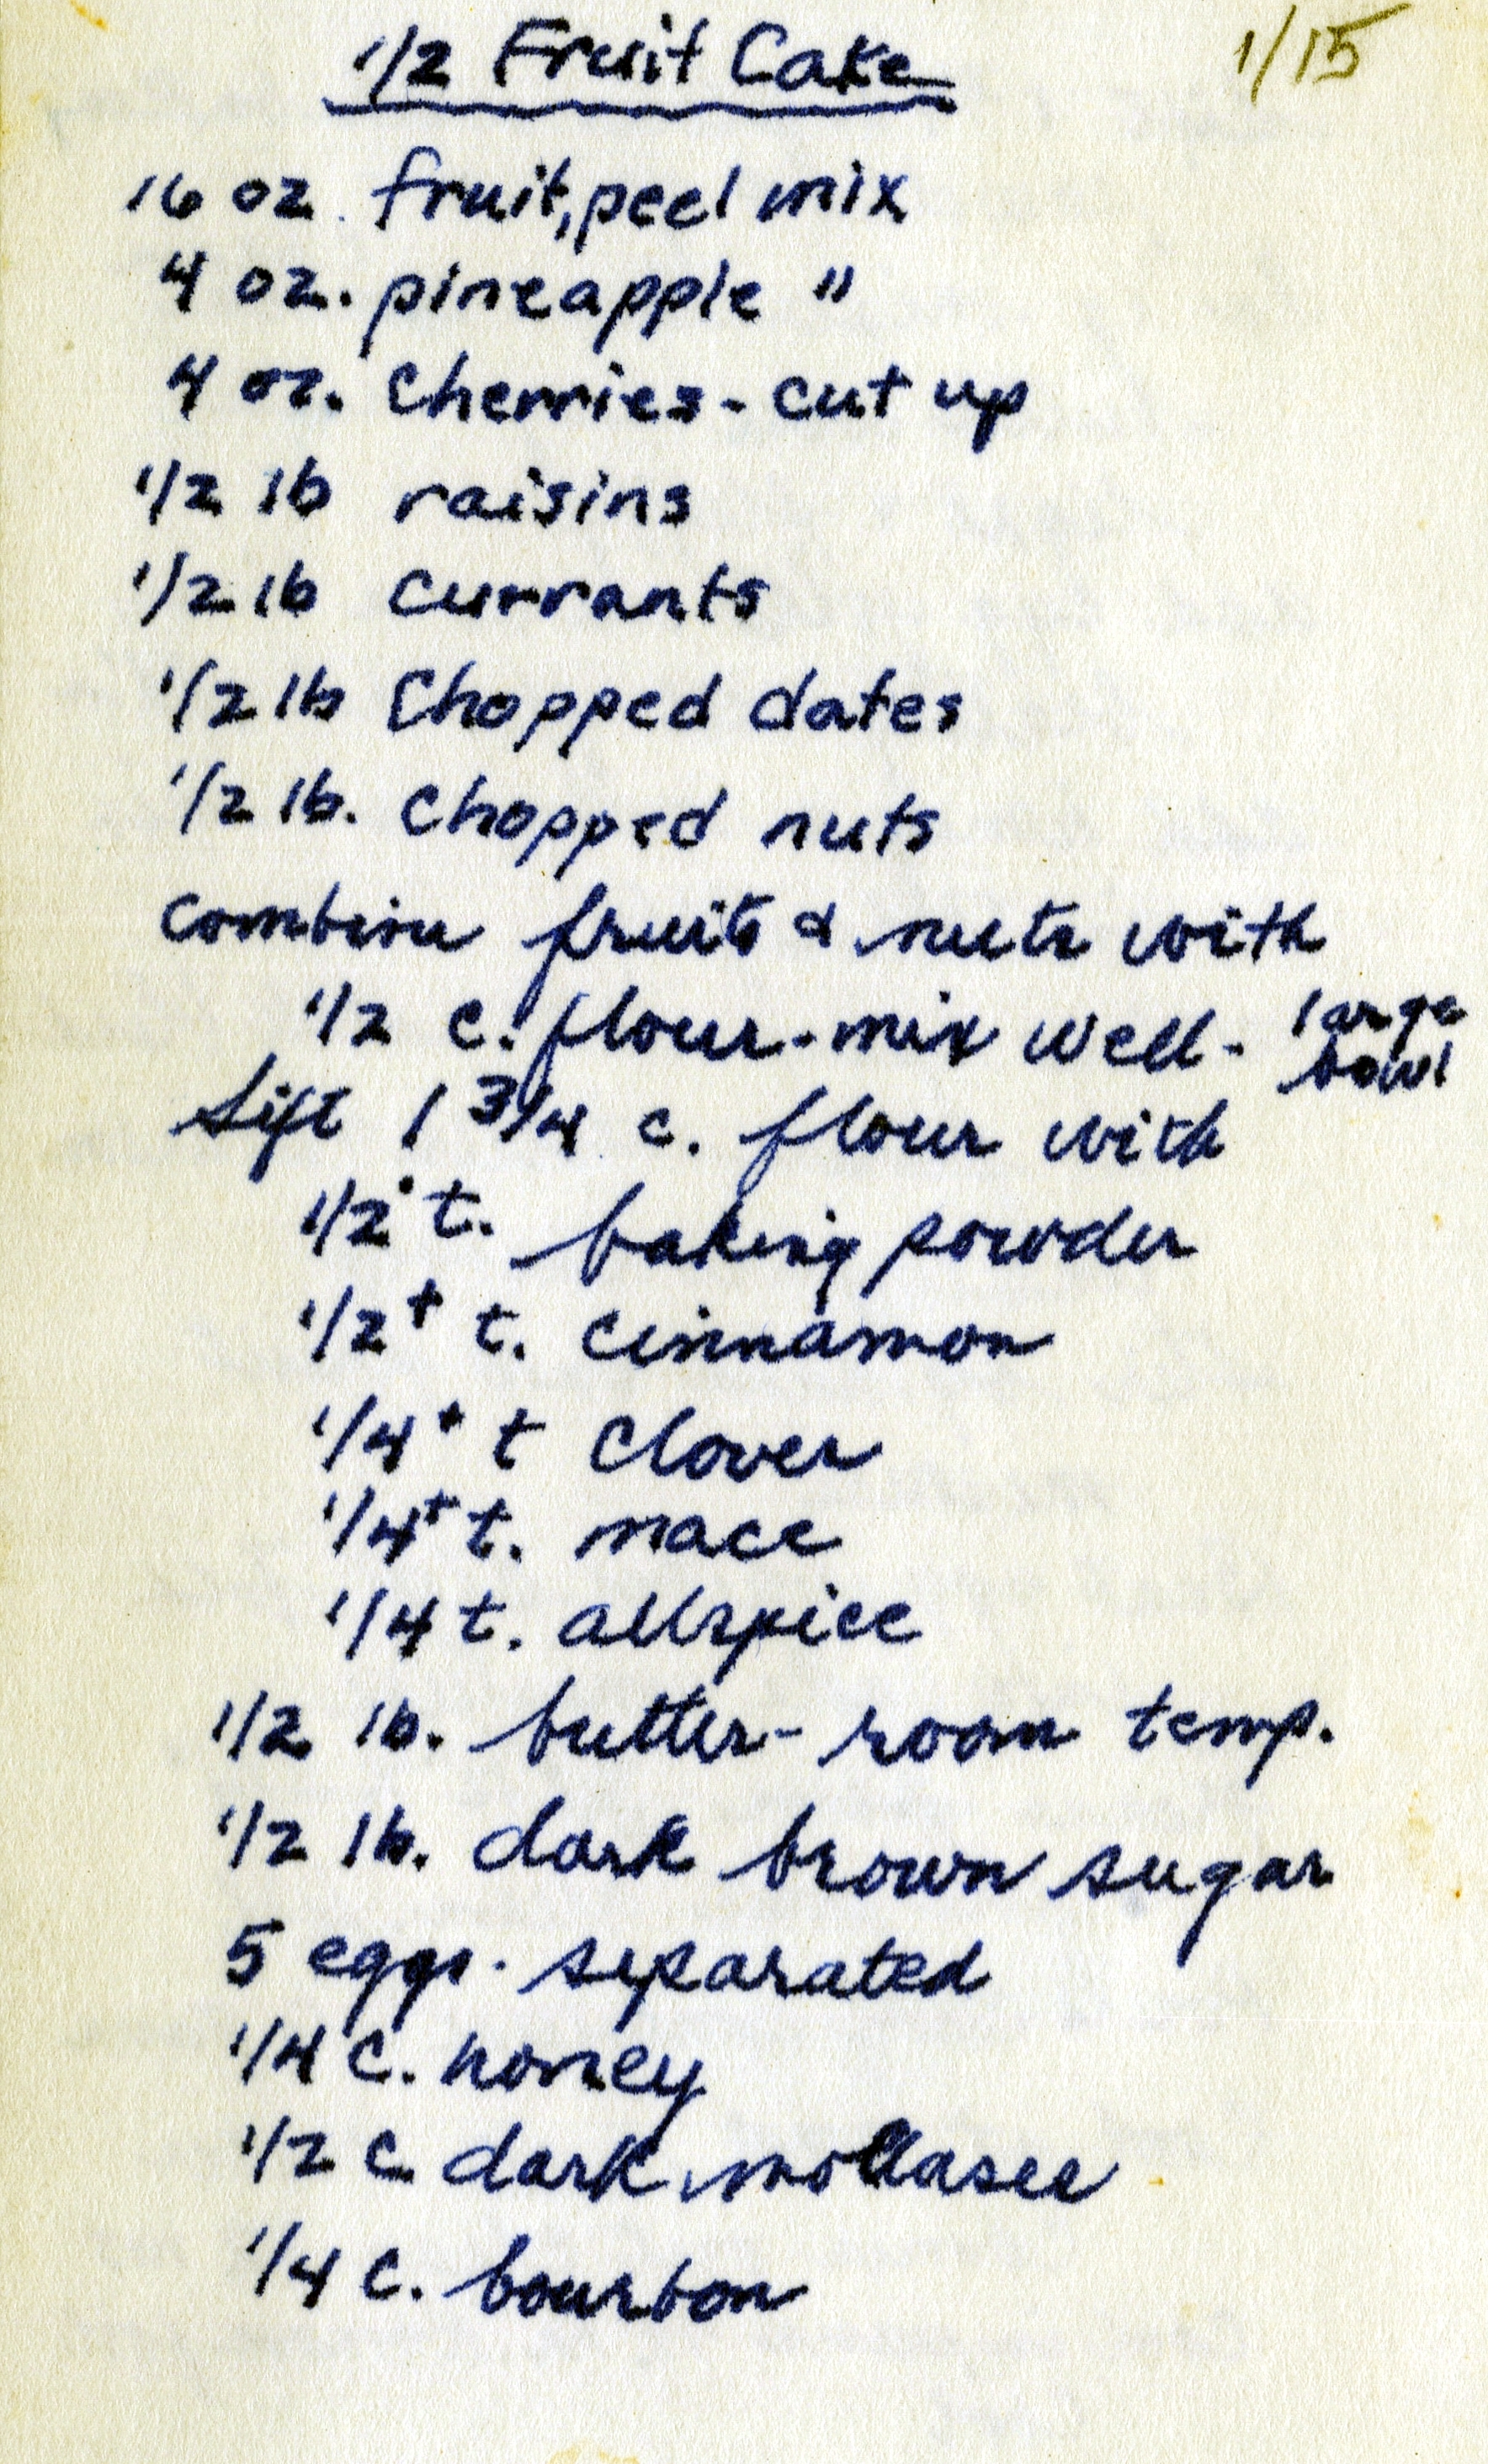 1/2 Fruit Cake
1/15
16 oz. fruit, peel mix
4 oz. pineapple "
4 oz. cherries - cut up
1/2 lb raisins
1/2 lb currants
1/2 lb Chopped dates
1/2 lb. chopped nuts
combine fruits & nuts with
1/2 c. flour - mix well - large bowl
Sift 1 3/4 c. flour with
1/2 t. baking powder
1/2+ t. cinnamon
1/4+ t cloves
1/4+ t. mace
1/4 t. allspice
1/2 lb. butter - room temp.
1/2 lb. dark brown sugar
5 eggs - separated
1/4 c. honey
1/2 c dark molasses
1/4 c. bourbon